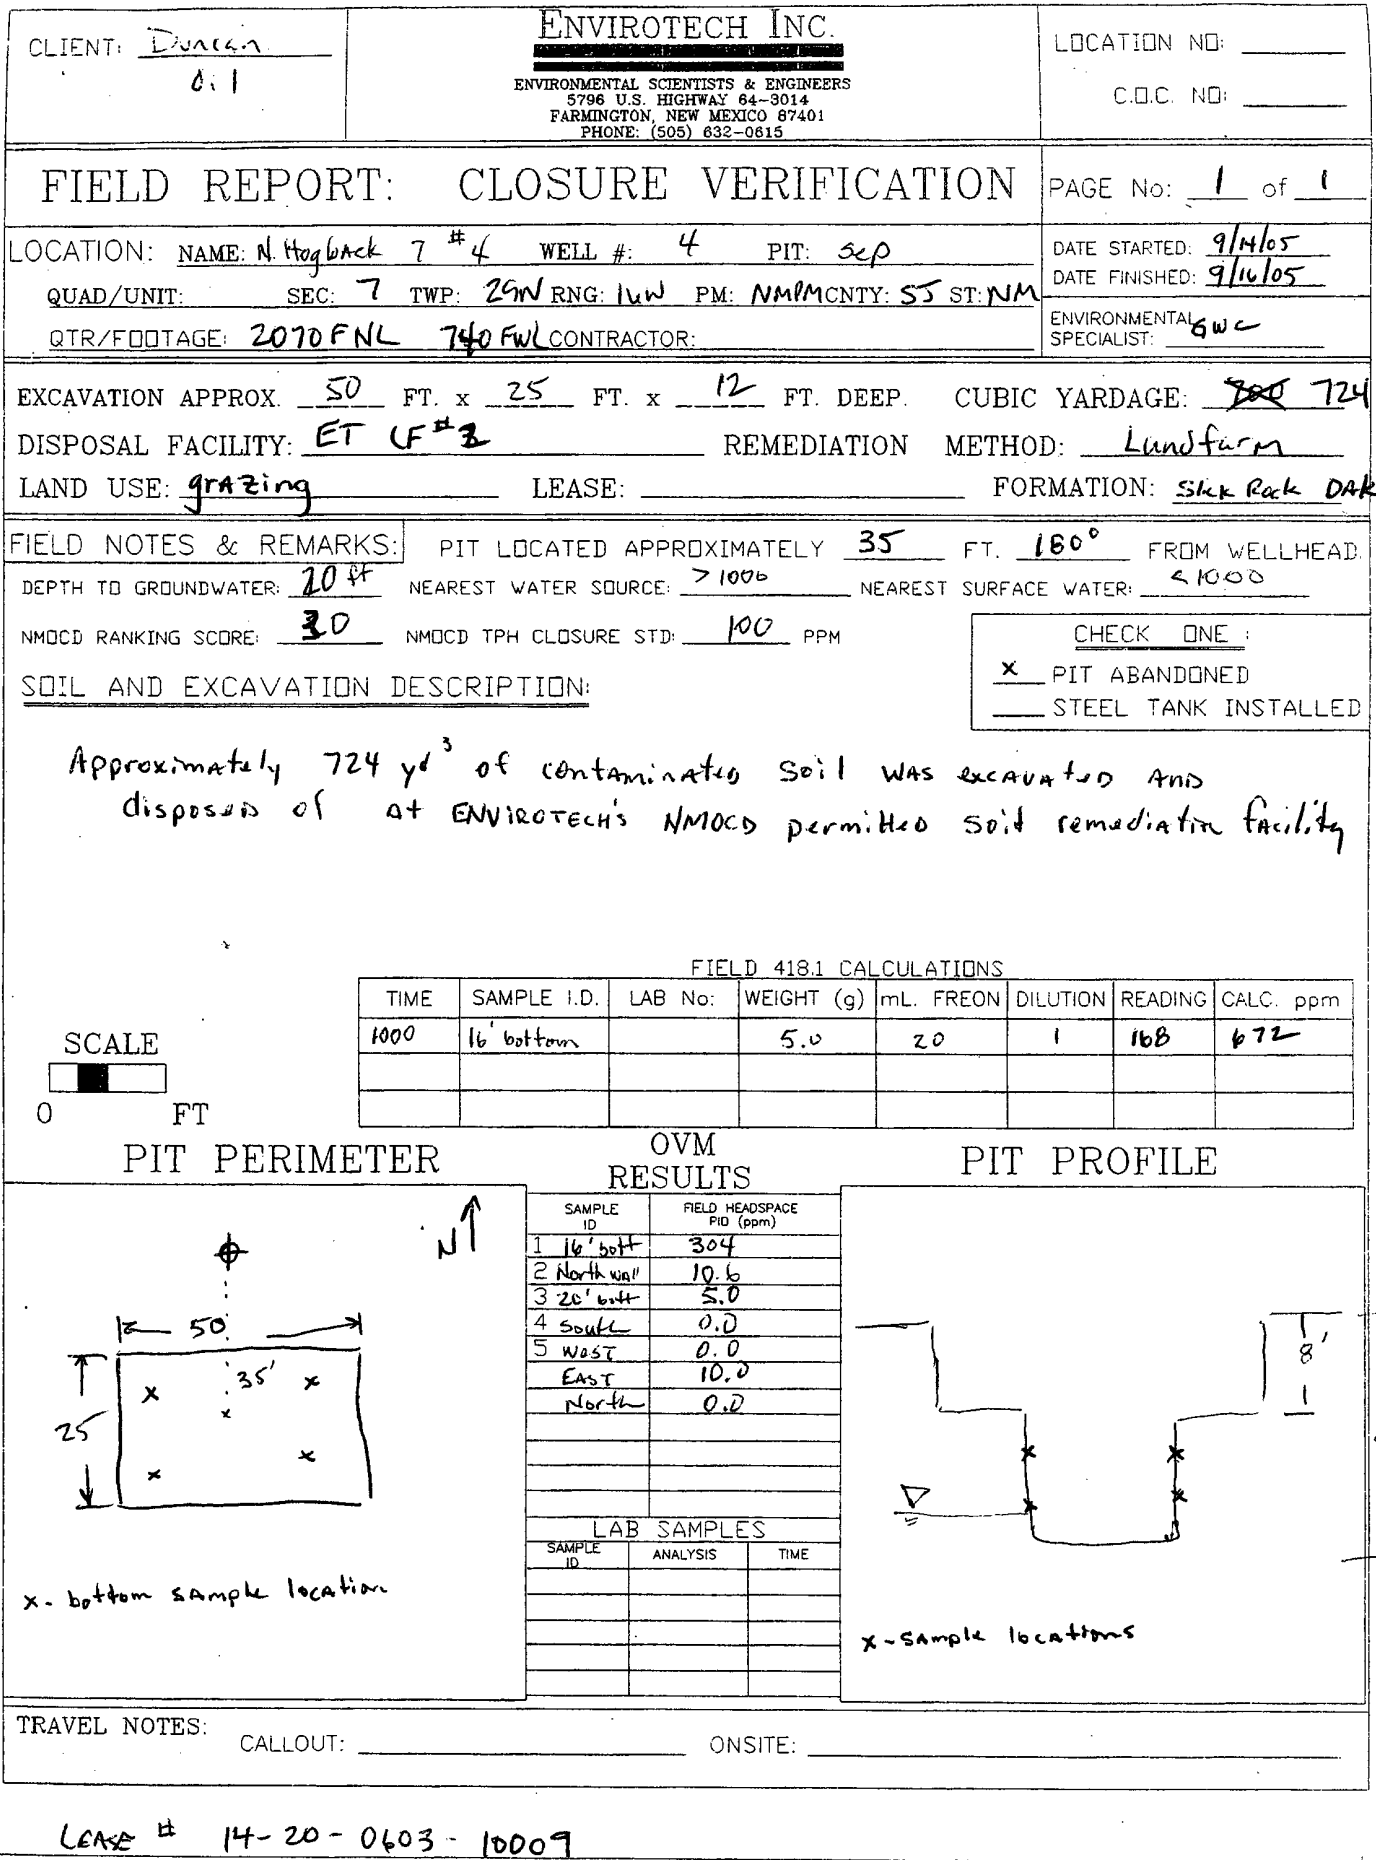 CLIENT: Duncan Oil
ENVIROTECH INC.
ENVIRONMENTAL SCIENTISTS & ENGINEERS
5796 U.S. HIGHWAY 64-3014
FARMINGTON, NEW MEXICO 87401
PHONE: (505) 632-0615
LOCATION NO:
C.O.C. NO:
FIELD REPORT: CLOSURE VERIFICATION
PAGE No: 1 of 1
LOCATION: NAME: N. Hogback 7 #4 WELL #: 4 PIT: Sep
QUAD/UNIT: SEC: 7 TWP: 29N RNG: 16W PM: NMPM CNTY: SJ ST: NM
QTR/FOOTAGE: 2070 FNL 740 FWL CONTRACTOR:
DATE STARTED: 9/14/05
DATE FINISHED: 9/16/05
ENVIRONMENTAL SPECIALIST: GWC
EXCAVATION APPROX. 50 FT. x 25 FT. x 12 FT. DEEP. CUBIC YARDAGE: 724
DISPOSAL FACILITY: ET LF # REMEDIATION METHOD: Landfarm
LAND USE: grazing LEASE: FORMATION: Slick Rock DAK
FIELD NOTES & REMARKS: PIT LOCATED APPROXIMATELY 35 FT. 180° FROM WELLHEAD.
DEPTH TO GROUNDWATER: 20 ft NEAREST WATER SOURCE: >1000 NEAREST SURFACE WATER: <1000
NMOCD RANKING SCORE: 30 NMOCD TPH CLOSURE STD: 100 PPM
CHECK ONE :
x PIT ABANDONED
STEEL TANK INSTALLED
SOIL AND EXCAVATION DESCRIPTION:
Approximately 724 yd³ of contaminated soil was excavated and
disposed of at ENVIROTECH'S NMOCD permitted soil remediation facility
FIELD 418.1 CALCULATIONS
TIME SAMPLE I.D. LAB No: WEIGHT (g) mL. FREON DILUTION READING CALC. ppm
1000 16' bottom 5.0 20 1 168 672
SCALE
0 FT
PIT PERIMETER
N
50
35'
25
x - bottom sample location
OVM
RESULTS
SAMPLE ID FIELD HEADSPACE PID (ppm)
1 16' bott 304
2 North wall 10.6
3 20' bott 5.0
4 South 0.0
5 West 0.0
East 10.0
North 0.0
LAB SAMPLES
SAMPLE ID ANALYSIS TIME
PIT PROFILE
8'
x - sample locations
TRAVEL NOTES: CALLOUT: ONSITE:
LEASE # 14-20-0603-10009